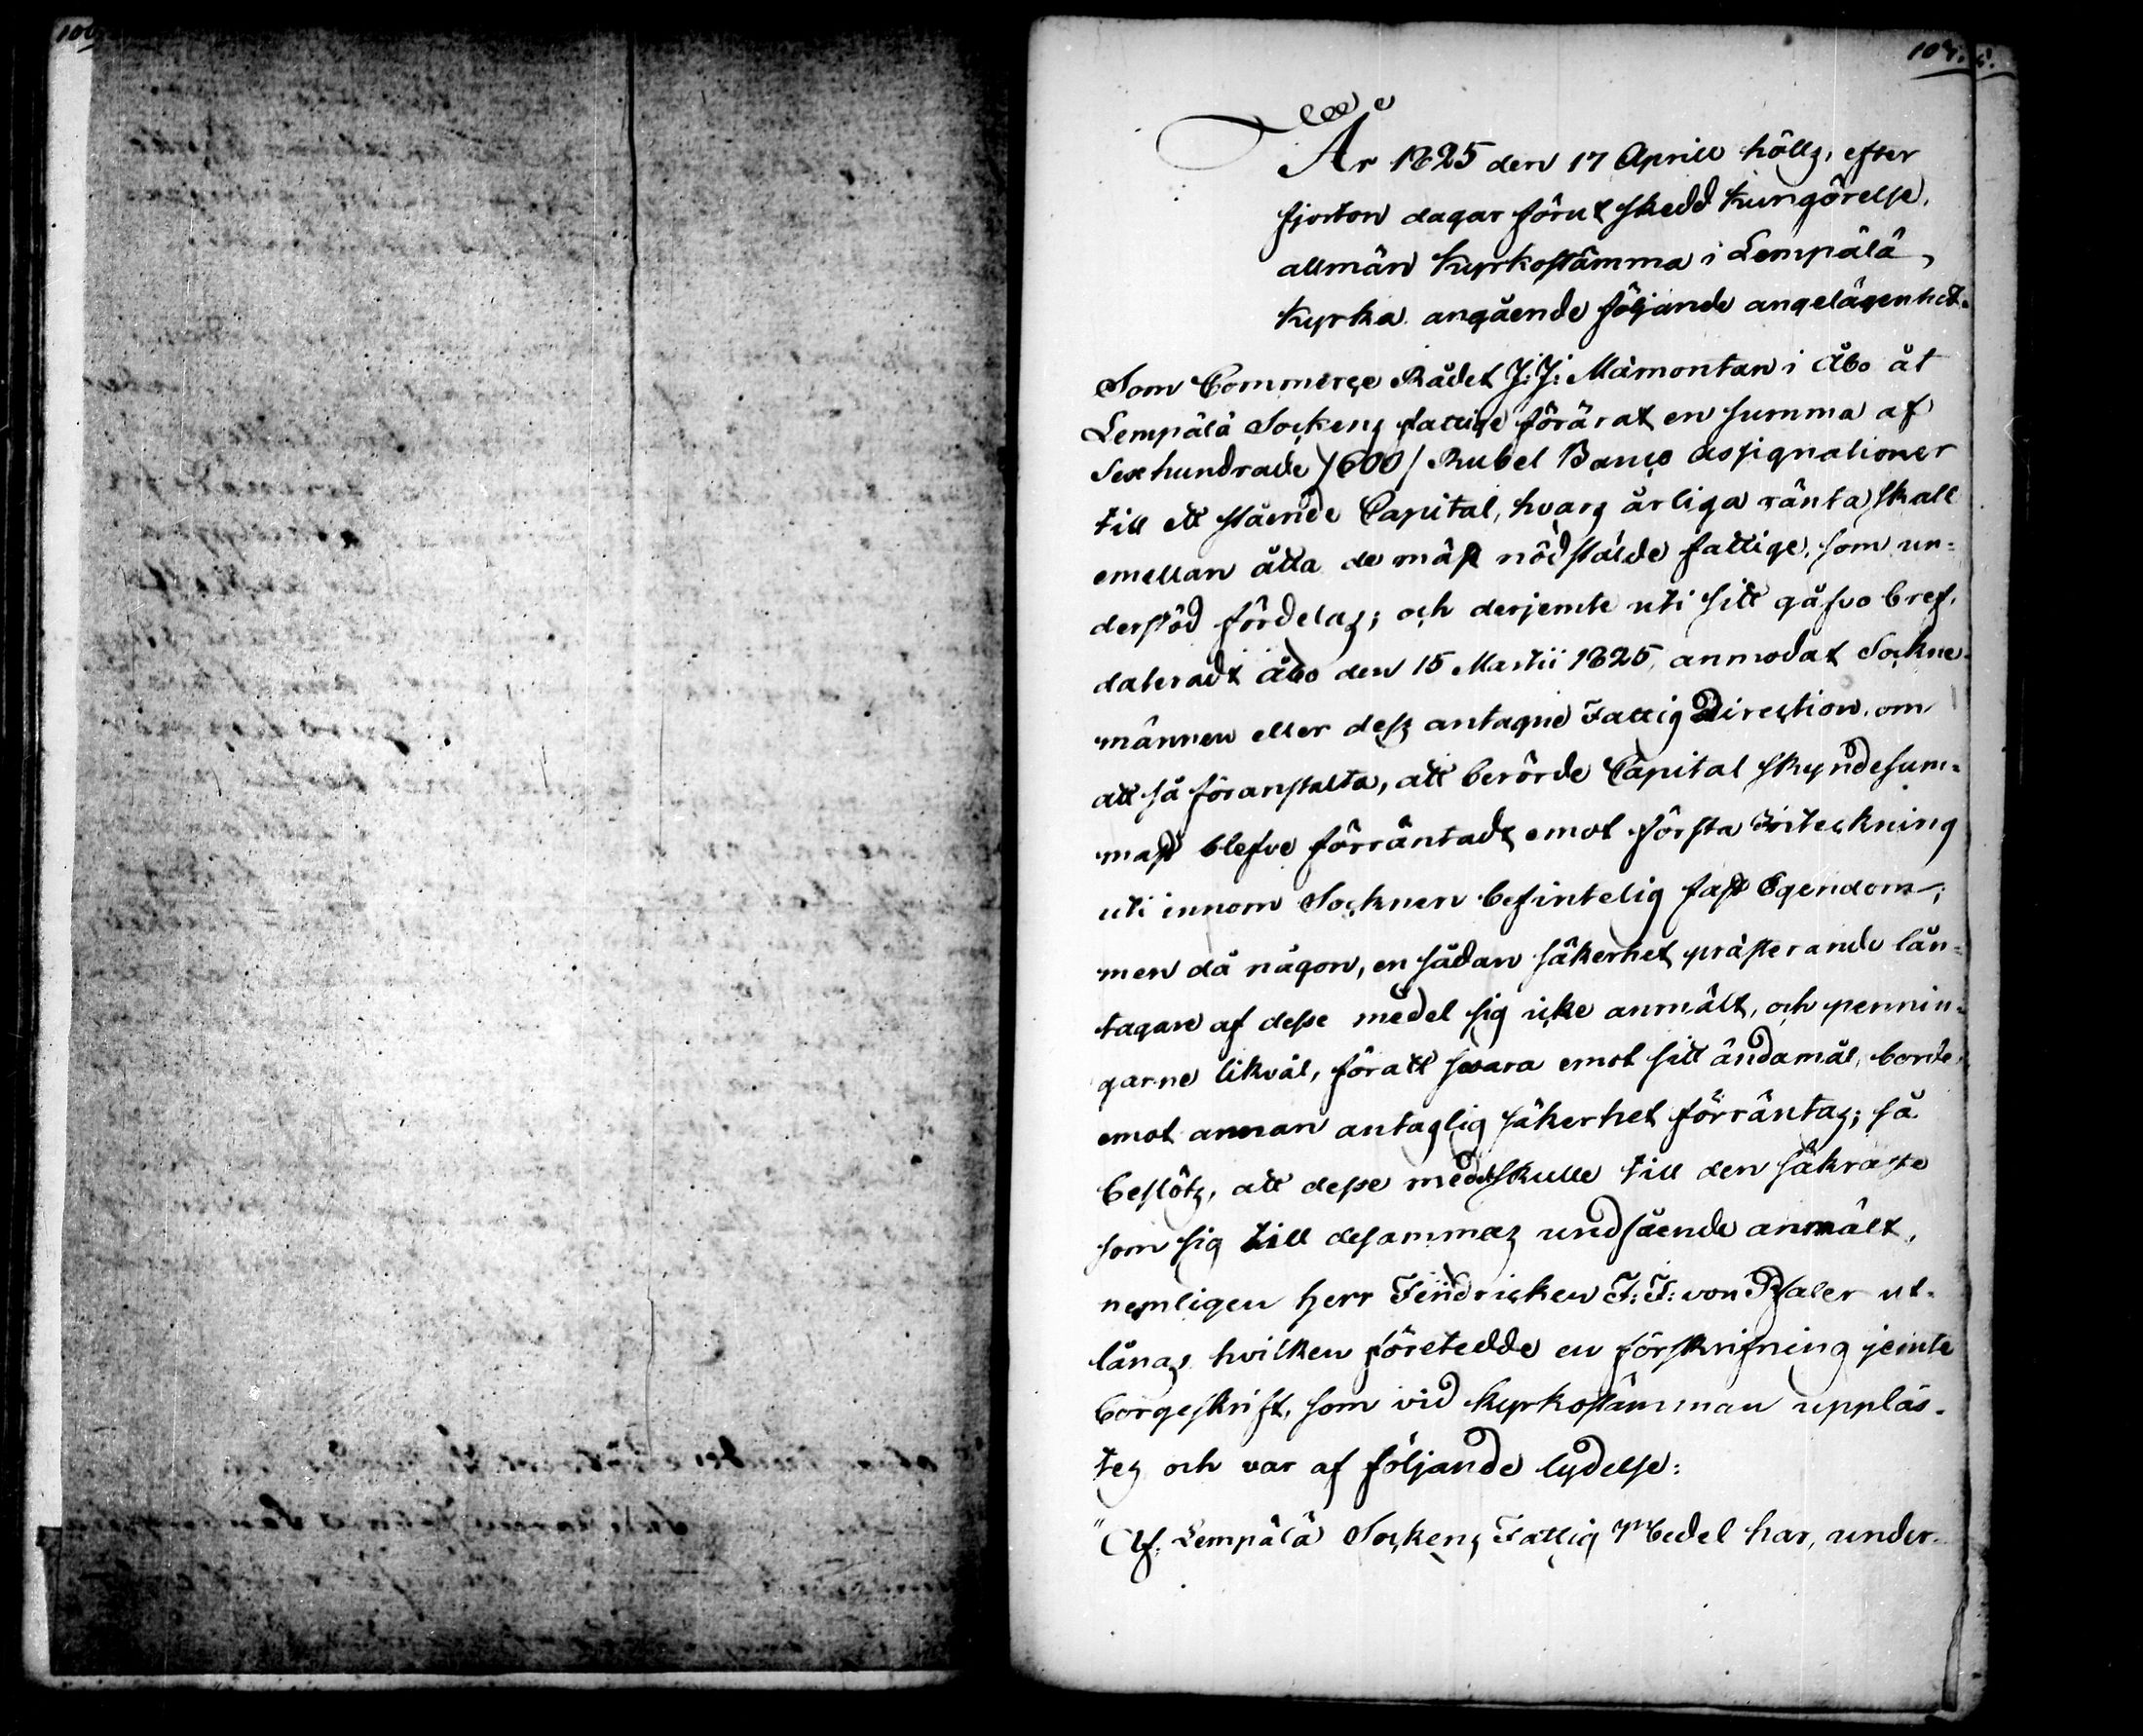 107.
År 1825 den 17 Aprill hölls, efter
fjorton dagar förut skedd kungörelse,
allmän kyrkostämma i Lempälä
kyrka angående följande angelägenhet.
Som Commerce Rådet J: J: Mämontan i Åbo åt
Lempälä Sockens fattige förärat en summa af
Sexhundrade /600/ Rubel Banco assignationer
till ett stående Capital, hvars årliga ränta skall
emellan åtta de mäst nödstälde fattige, som un-
derstöd fördelas; och derjemte uti sitt gåfvobref,
dateradt Åbo den 15 Martii 1825, anmodat Sockne-
männen eller dess antagne Fattig Direction, om
att så föranstalta, att berörde Capital skyndesam-
mast blefve förräntadt emot första Inteckning
uti innom Socknen befintelig fast Egendom;
men då någon, en sådan säkerhet præsterande lån-
tagare af desse medel sig icke anmält, och pennin-
garne likväl, för att svara emot sitt ändamål, borde
emot annan antaglig säkerhet förräntas; så
beslöts, att desse medel skulle till den säkraste
som sig till desammas undfående anmält,
nemligen Herr Fendricken F: F: von Pfaler ut-
lånas, hvilken företedde en förskrifning jemte
borgeskrift, som vid kyrkostämman uppläs-
tes och var af följande lydelse:
"Af Lempälä Sockens Fattig Medel har, under-